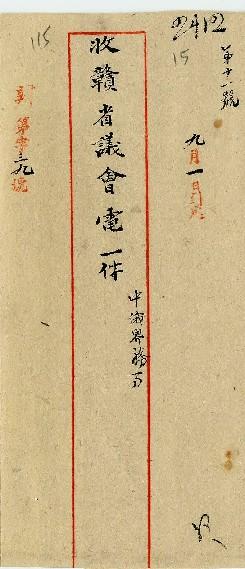 2412
15
第十一號
九月一日到
收贛省議會電一件
中俄界務事
115
第零三九號